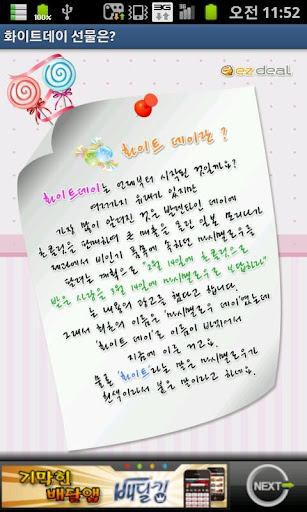 100%
3G
오전 11:52
화이트데이 선물은?
ez deal
화이트 데이란?
화이트데이는 언제부터 시작된 것일까요?
여러가지 유래가 있지만
가장 많이 알려진 것은 발렌타인 데이에
초콜릿을 판매하여 큰 매출을 올린 일본 모 제과
제과에서 비인기 품목에 속하던 마시멜로우를
팔려는 계획으로 "2월 14일에 초콜릿으로
받은 사랑을 3월 14일에 마시멜로우로 보답하라"
는 내용의 광고를 했다고 합니다.
그래서 최초의 이름은 '마시멜로우 데이'였는데
'화이트 데이'로 이름이 바뀌어서
지금에 이른 거고요.
물론 '화이트'라는 말은 마시멜로우가
흰색이라서 붙은 말이라고 하네요.
기막힌
배달앱
배달킹
NEXT